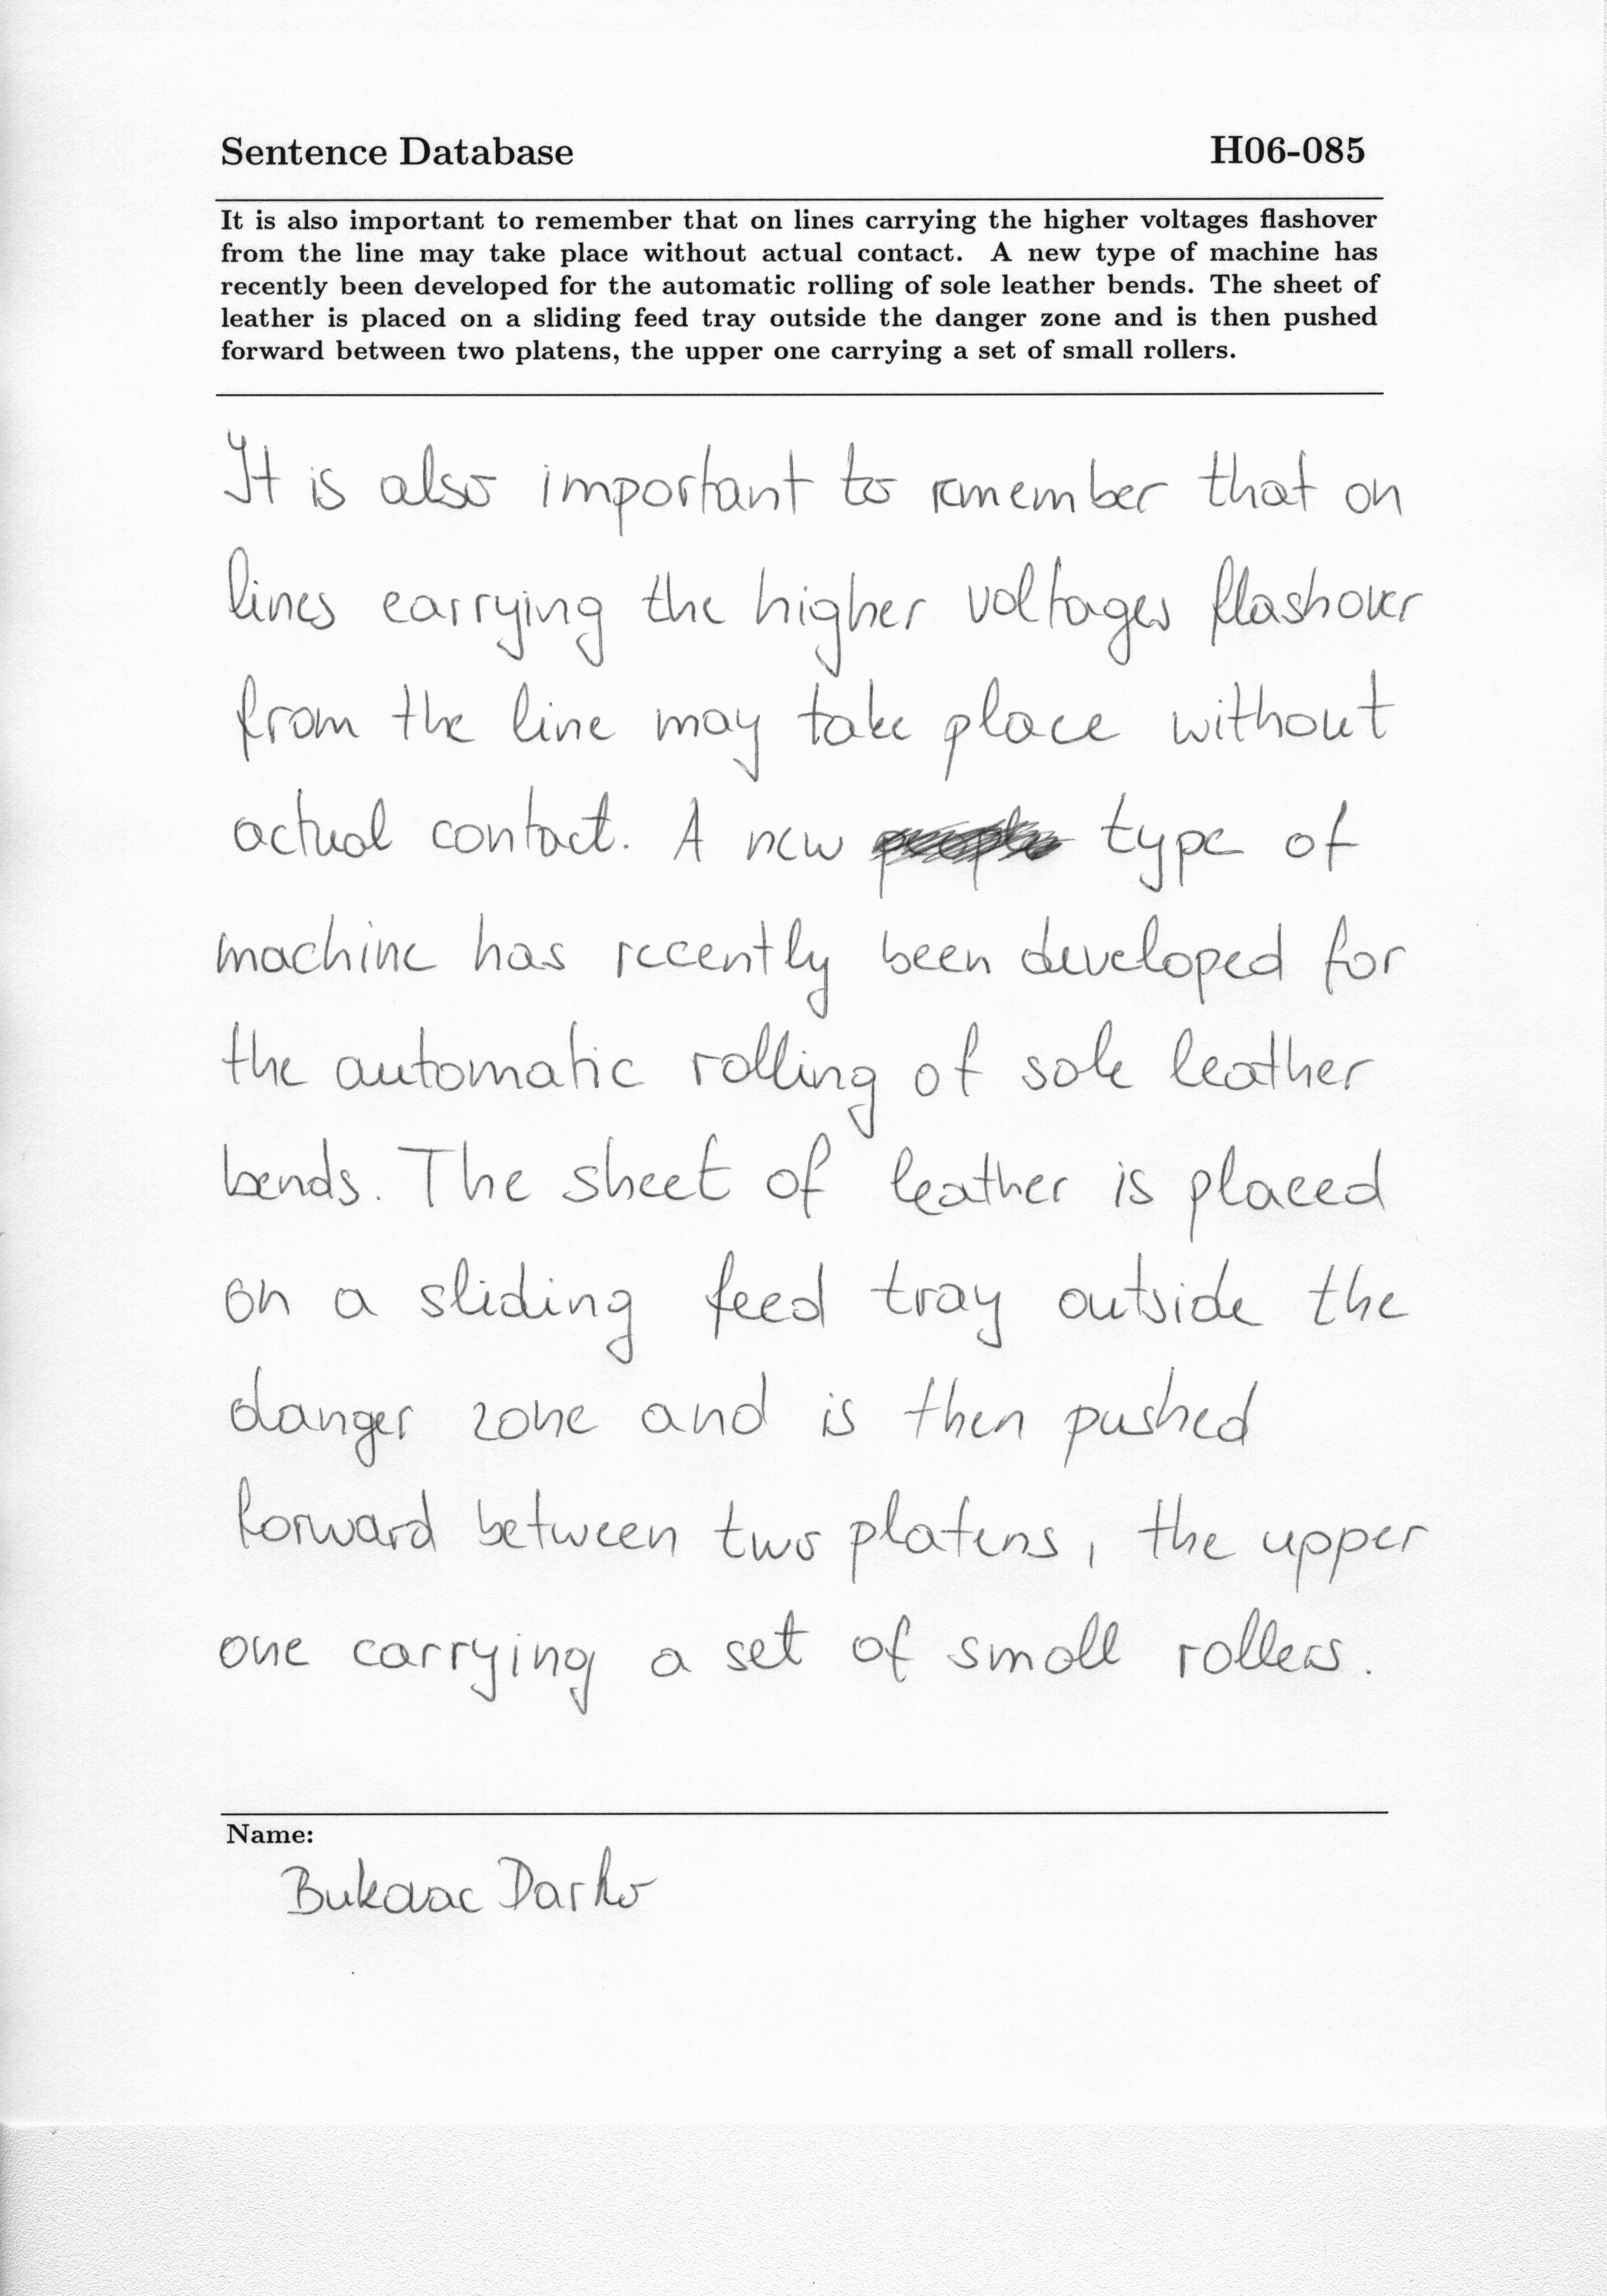 Sentence Database H06-085
It is also important to remember that on lines carrying the higher voltages flashover
from the line may take place without actual contact. A new type of machine has
recently been developed for the automatic rolling of sole leather bends. The sheet of
leather is placed on a sliding feed tray outside the danger zone and is then pushed
forward between two platens, the upper one carrying a set of small rollers.
It is also important to remember that on
lines carrying the higher voltages flashover
from the line may take place without
actual contact. A new type of
machine has recently been developed for
the automatic rolling of sole leather
bends. The sheet of leather is placed
on a sliding feed tray outside the
danger zone and is then pushed
forward between two platens, the upper
one carrying a set of small rollers.
Name:
Darko